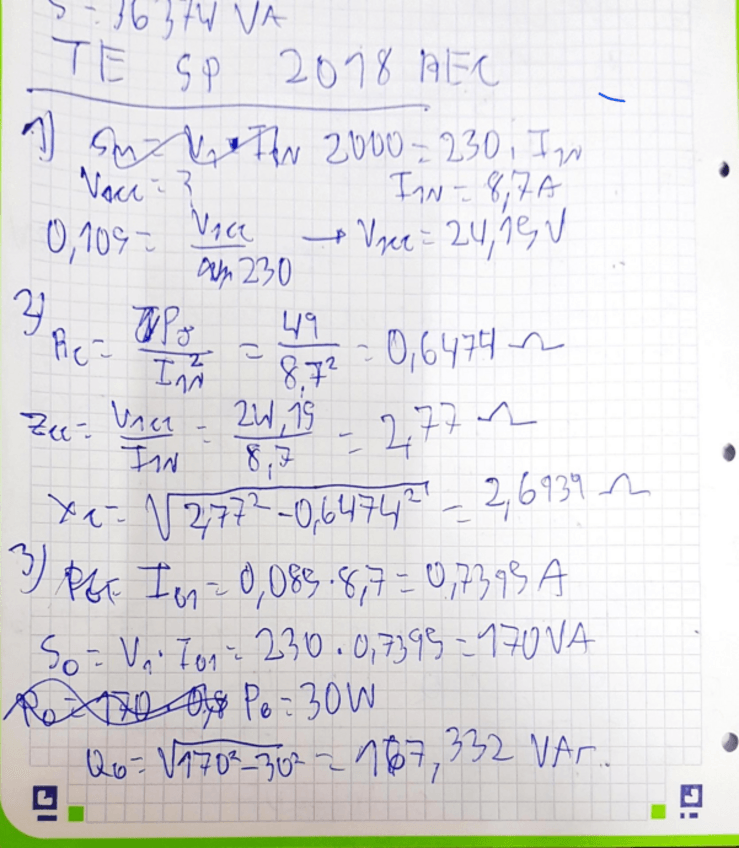 S = 36374 VA
TE SP 2018 AEC
1) Sn = V1 · I1N 2000 = 230 · I1N
V1cc = ? I1N = 8,7A
0,105 = V1cc / 230 → V1cc = 24,15V
2) Rc = P8 / I1N² = 49 / 8,7² = 0,6474 Ω
Zcc = V1cc / I1N = 24,15 / 8,7 = 2,77 Ω
Xc = √2,77² - 0,6474² = 2,6939 Ω
3) I01 = 0,085 · 8,7 = 0,7395 A
S0 = V1 · I01 = 230 · 0,7395 = 170VA
P0 = 170 · 0,8 P0 = 30W
Q0 = √170² - 30² = 167,332 VAr.